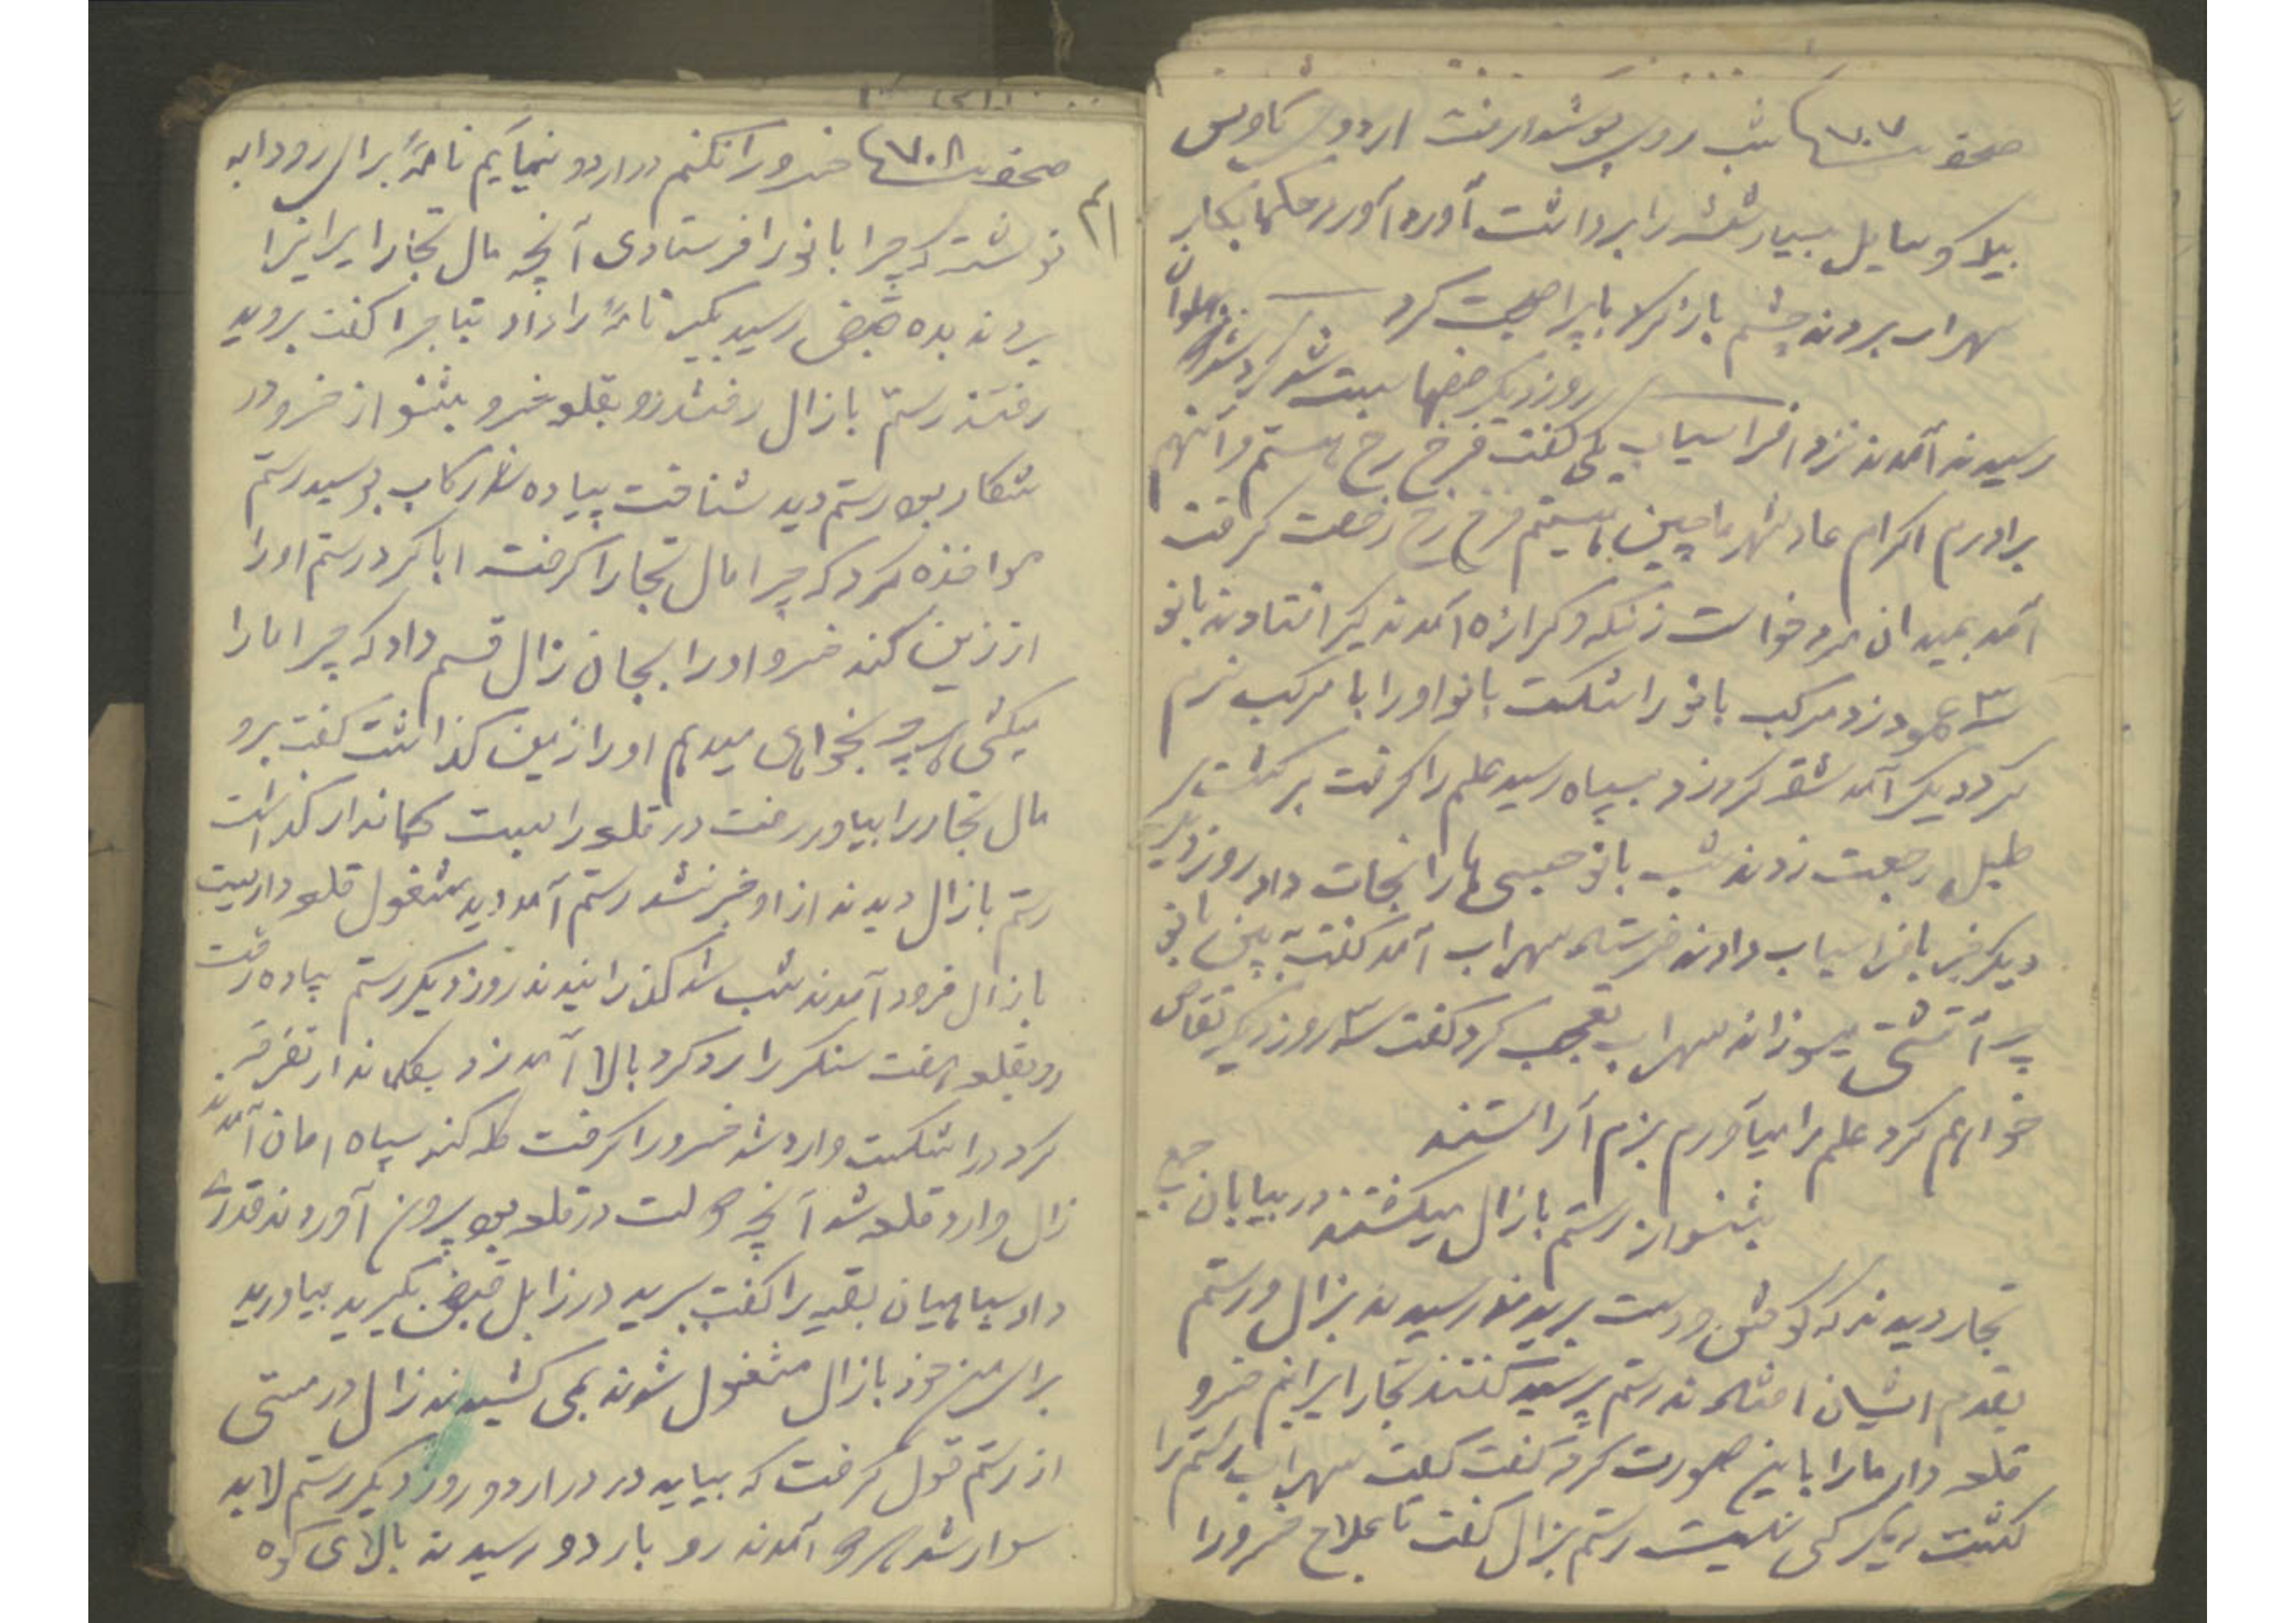 صحفه ۷۰۷ شب روی پوشوار رفت اردوی کاوس
بیلک وسایل بسیار شش را برداشت آورد حکما بکار
سهراب بردند چشم باز کرد با پیر صحبت کرد
روز دیگر صفها بست شد گرد شد پهلوان
رسیدند آمدند نزد افراسیاب یکی گفت فرخ رخ هستم و آنهم
برادرم اکرام عاد شهر ماچین هستیم فرخ رخ رخصت گرفت
آمد بمیدان مرد خواست زنگه و گرازه آمدند گیر افتادند بانو
۳ عمود زد مرکب بانو را شکست بانو او را با مرکب نرم
کرد دیگر آمد شقه کرد زد بسپاه رسید علم را گرفت برگشت
طبل رجعت زدند شب بانو حبسی ها را نجات داد روز دیگر
دیگر خبر بافراسیاب دادند فرستاد سهراب آمد گفت به بین بانو
پر آتشی میسوزاند سهراب تعجب کرد گفت ۳ روز دیگر تقاص
خواهم کرد علم را میآورم بزم آراستند
بشنو از رستم با زال میگشتند در بیابان جمعی
تجار دیدند که گوش و دست بریده رسیدند بزال و رستم
بقدم ایشان افتادند رستم پرسید گفتند تجار ایرانیم خسرو
قلعه دار ما را باین صورت کرد گفت کیست سهراب رستم را
کشت دیگر کی نیست رستم بزال گفت تا علاج خسرو را
صحفه ۷۰۸ خسرو را نکنم در اردو نمیآیم نامهٔ برای رودابه
نوشت که چرا بانو را فرستادی آنچه مال تجار ایرانرا
بردند بده قبض رسید بگیر نامهٔ را داد بتاجرا گفت بروید
رفتند رستم با زال رفتند رو بقلعه خسرو بشنو از خسرو در
شکار بود رستم دید شناخت پیاده شد رکاب بوسید رستم
مواخذه کرد که چرا مال تجار را گرفته ابا کرد رستم او را
از زین کند خسرو او را بجان زال قسم داد که چرا ما را
میکشی هر چه بخواهی میدهم او را زمین گذاشت گفت برو
مال تجار را بیاور رفت در قلعه را بست کماندار گذاشت
رستم با زال دیدند از او خبر نشد رستم آمد دید مشغول قلعه داریست
با زال فرود آمدند شب شد گذرانیدند روز دیگر رستم پیاده رفت
رو بقلعه رفت سنگر را رد کرد بالا آمد زد بکماندار تفرقه
کرد در را شکست وارد شد خسرو را گرفت کله کند سپاه امان آمدند
زال وارد قلعه شد آنچه دولت در قلعه بود بیرون آوردند قدری
داد سپاهیان بقیه را گفت ببرید در زابل قبض بگیرید بیاورید
برای من خود با زال مشغول شدند بمی کشیدند زال در مستی
از رستم قول گرفت که بیاید در در اردو روز دیگر رستم لابد
سوار شد هر دو آمدند رو باردو رسیدند بالای کوه